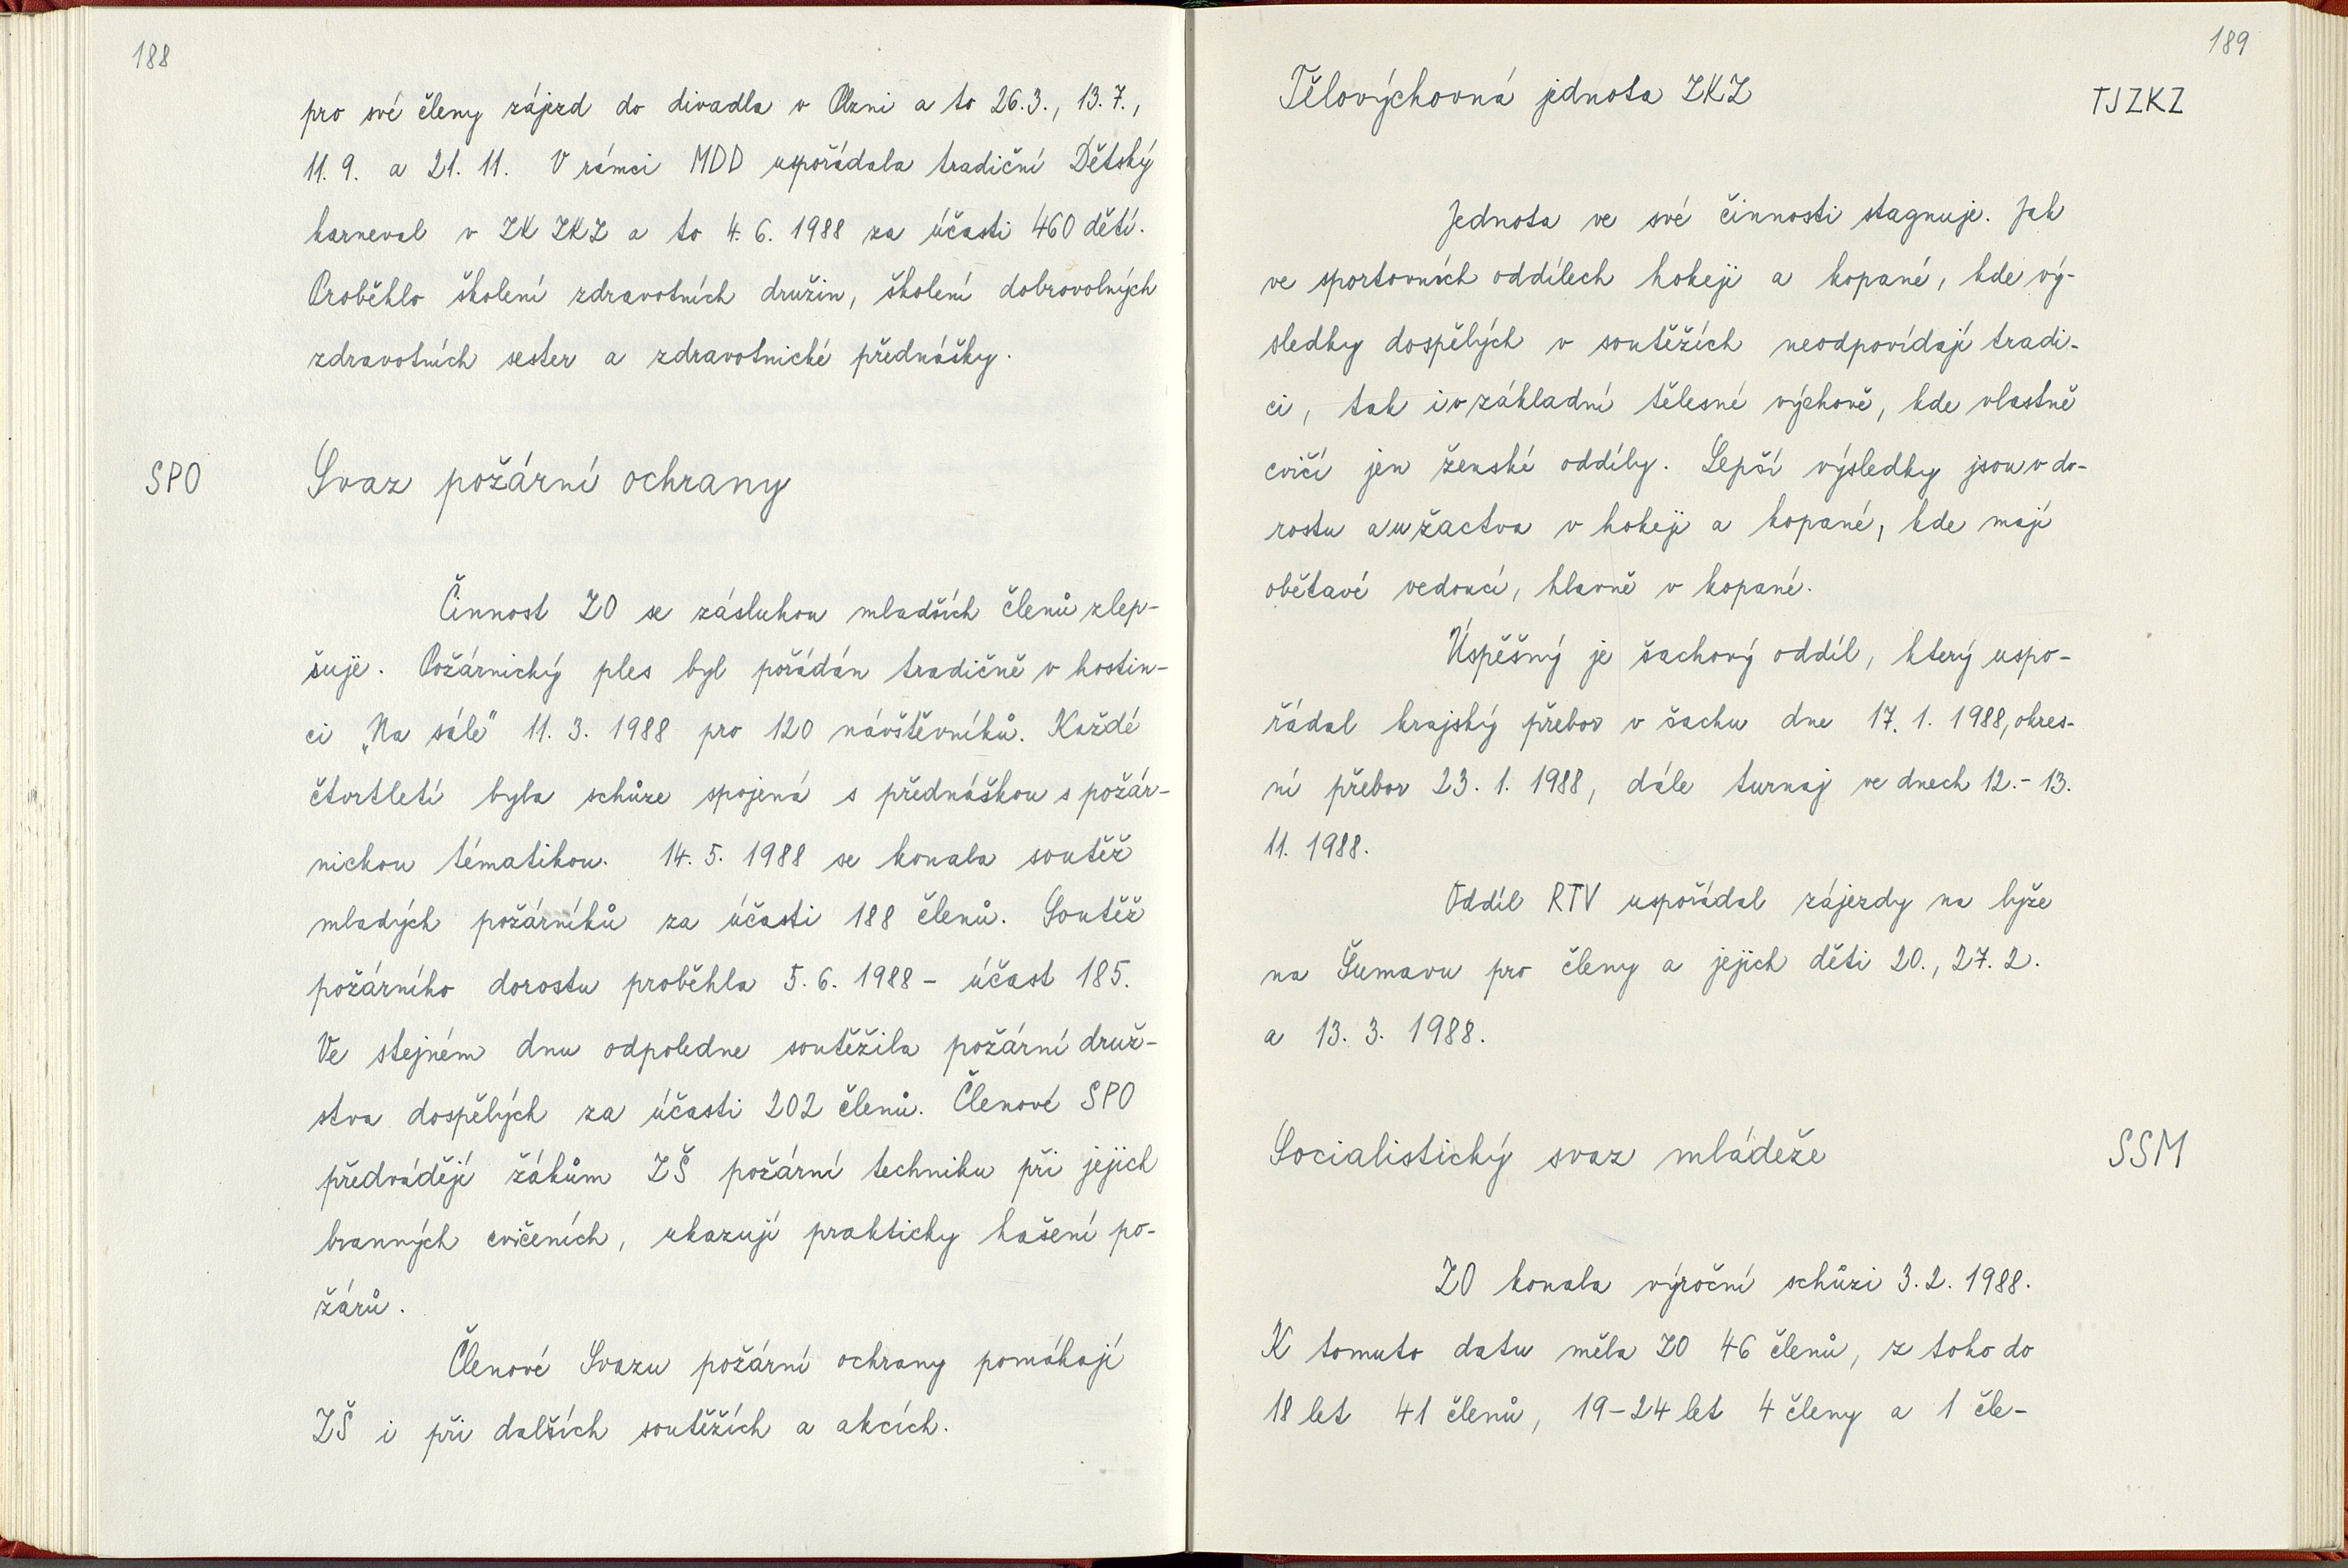 188
pro své členy zájezd do divadla v Plzni a to 26.3., 13.7.,
11.9. a 21.11. V rámci MDD uspořádala tradiční Dětský
karneval v ZK ZKZ a to 4.6.1988 za účasti 460 dětí.
Proběhlo školení zdravotních družin, školení dobrovolných
zdravotních sester a zdravotnické přednášky.
SPO
Svaz požární ochrany
Činnost ZO se zásluhou mladších členů zlep-
šuje. Požárnický ples byl pořádán tradičně v hostin-
ci „Na sále" 11.3.1988 pro 120 návštěvníků. Každé
čtvrtletí byla schůze spojená s přednáškou s požár-
nickou tématikou. 14.5.1988 se konala soutěž
mladých požárníků za účasti 188 členů. Soutěž
požárního dorostu proběhla 5.6.1988 - účast 185.
Ve stejném dnu odpoledne soutěžila požární druž-
stva dospělých za účasti 202 členů. Členové SPO
předvádějí žákům ZŠ požární techniku při jejich
branných cvičeních, ukazují prakticky hašení po-
žárů.
Členové Svazu požární ochrany pomáhají
ZŠ i při dalších soutěžích a akcích.
189
Tělovýchovná jednota ZKZ
TJZKZ
Jednota ve své činnosti stagnuje. Jak
ve sportovních oddílech hokeje a kopané, kde vý-
sledky dospělých v soutěžích neodpovídají tradi-
ci, tak i v základní tělesné výchově, kde vlastně
cvičí jen ženské oddíly. Lepší výsledky jsou v do-
rostu a u žactva v hokeji a kopané, kde mají
obětavé vedoucí, hlavně v kopané.
Úspěšný je šachový oddíl, který uspo-
řádal krajský přebor v šachu dne 17.1.1988, okres-
ní přebor 23.1.1988, dále turnaj ve dnech 12.-13.
11.1988.
Oddíl RTV uspořádal zájezdy na lyže
na Šumavu pro členy a jejich děti 20., 27.2.
a 13.3.1988.
Socialistický svaz mládeže
SSM
ZO konala výroční schůzi 3.2.1988.
K tomuto datu měla ZO 46 členů, z toho do
18 let 41 členů, 19-24 let 4 členy a 1 čle-